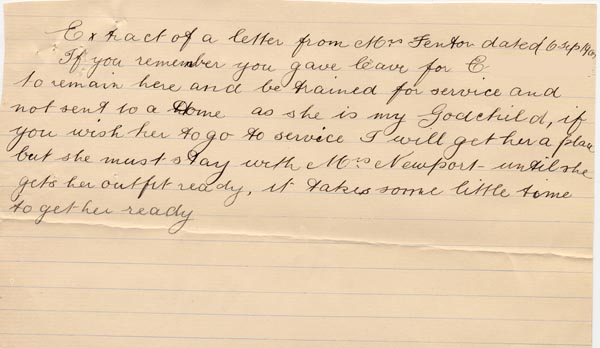 Extract of a letter from Mrs Fenton dated 6 Sep
If you remember you gave leave for E
to remain here and be trained for service and
not sent to a Home as she is my Godchild, if
you wish her to go to service I will get her a place
but she must stay with Mrs Newport - until she
gets her outfit ready, it takes some little time
to get her ready